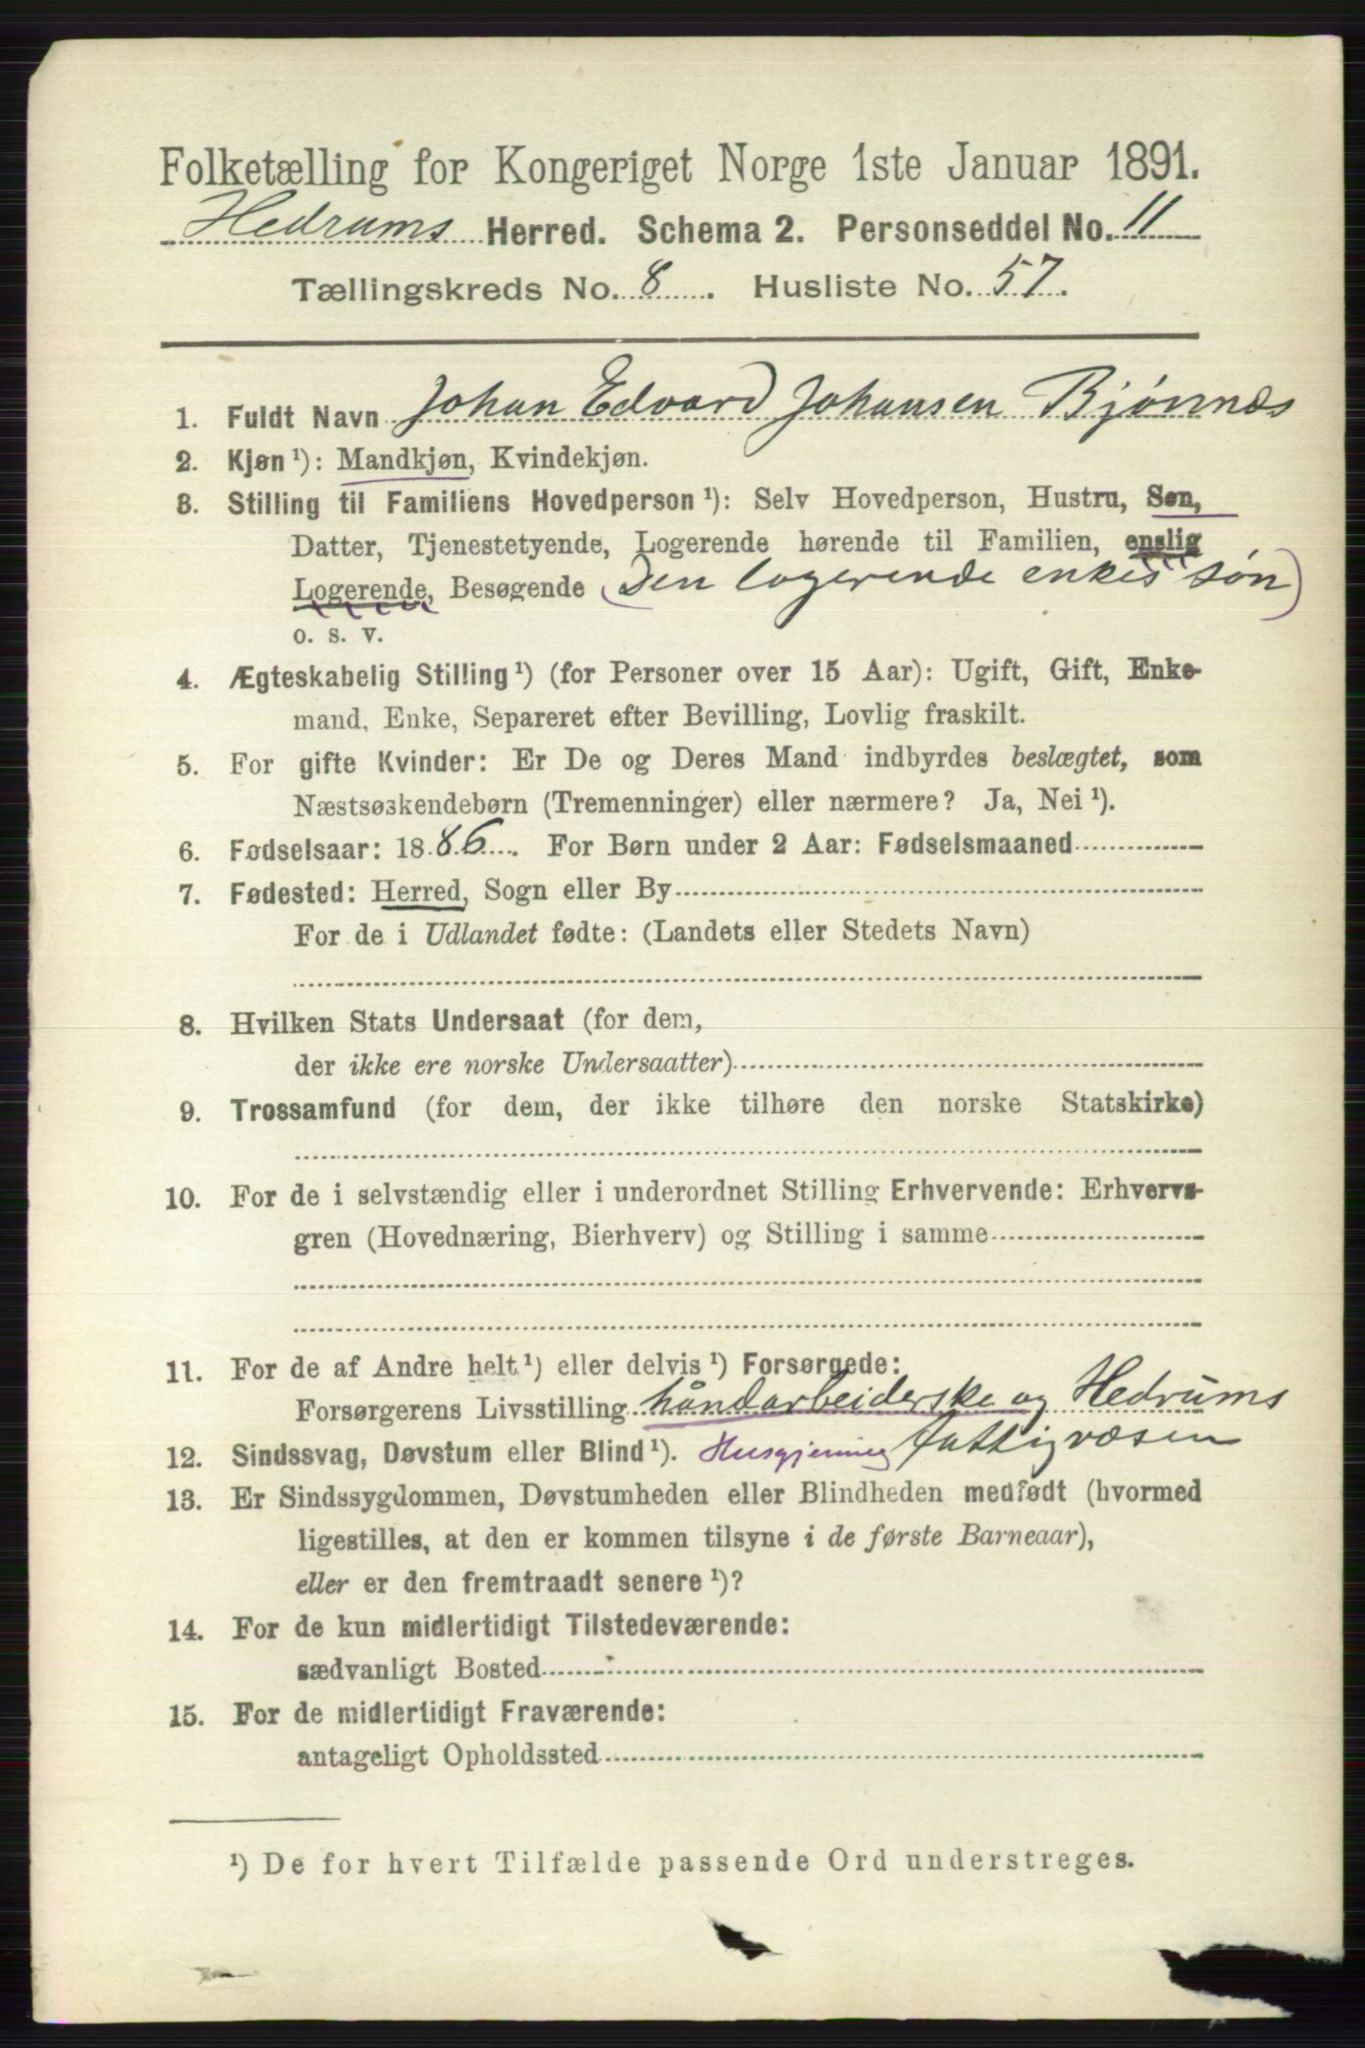 Folketælling for Kongeriget Norge 1ste Januar 1891.
Hedrums Herred. Schema 2. Personseddel No. 11
Tællingskreds No. 8. Husliste No. 57.
1. Fuldt Navn Johan Edvard Johansen Bjønnes
2. Kjøn ¹): Mandkjøn, Kvindekjøn.
3. Stilling til Familiens Hovedperson ¹): Selv Hovedperson, Hustru, Søn,
Datter, Tjenestetyende, Logerende hørende til Familien, enslig
Logerende, Besøgende (Den logerende enkes søn)
o. s. v.
4. Ægteskabelig Stilling ¹) (for Personer over 15 Aar): Ugift, Gift, Enke-
mand, Enke, Separeret efter Bevilling, Lovlig fraskilt.
5. For gifte Kvinder: Er De og Deres Mand indbyrdes beslægtet, som
Næstsøskendebørn (Tremenninger) eller nærmere? Ja, Nei ¹).
6. Fødselsaar: 1886. For Børn under 2 Aar: Fødselsmaaned
7. Fødested: Herred, Sogn eller By
For de i Udlandet fødte: (Landets eller Stedets Navn)
8. Hvilken Stats Undersaat (for dem,
der ikke ere norske Undersaatter)
9. Trossamfund (for dem, der ikke tilhøre den norske Statskirke)
10. For de i selvstændig eller i underordnet Stilling Erhvervende: Erhvervs-
gren (Hovednæring, Bierhverv) og Stilling i samme
11. For de af Andre helt ¹) eller delvis ¹) Forsørgede:
Forsørgerens Livsstilling håndarbeiderske og Hedrums
12. Sindssvag, Døvstum eller Blind ¹). Husgjerning fattigvæsen
13. Er Sindssygdommen, Døvstumheden eller Blindheden medfødt (hvormed
ligestilles, at den er kommen tilsyne i de første Barneaar),
eller er den fremtraadt senere ¹)?
14. For de kun midlertidigt Tilstedeværende:
sædvanligt Bosted
15. For de midlertidigt Fraværende:
antageligt Opholdssted
¹) De for hvert Tilfælde passende Ord understreges.